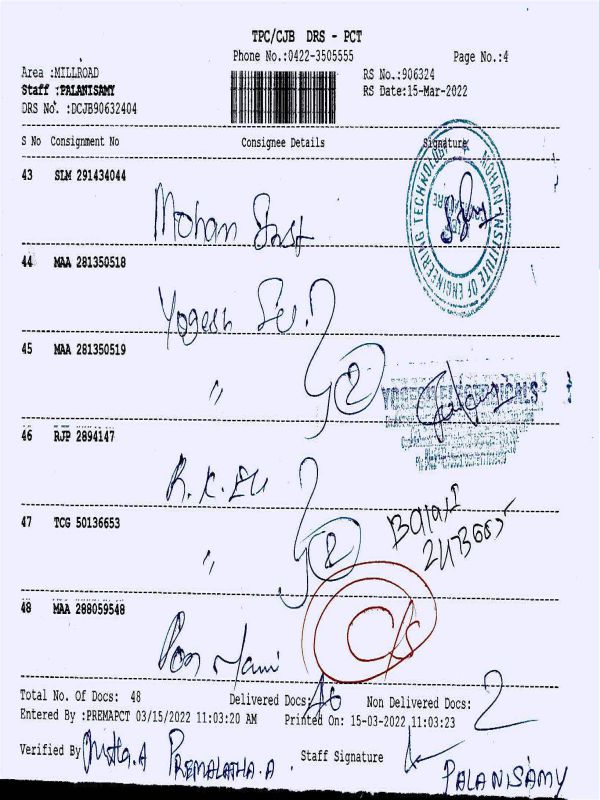 TPC/CJB DRS - PCT
Phone No.:0422-3505555 Page No.:4
Area :MILLROAD RS No.:906324
Staff :PALANISAMY RS Date:15-Mar-2022
DRS No. :DCJB90632404
S No Consignment No Consignee Details Signature
MOHAN INSTITUTE OF ENGINEERING TECHNOLOGY
43 SLM 291434044
Mohan Inst
44 MAA 281350518
Yogesh
45 MAA 281350519
〃 2
46 RJP 2894147
R.K.
Balaji
47 TCG 50136653
〃 2
48 MAA 288059548
Pon Mani
Total No. Of Docs: 48 Delivered Docs: 46 Non Delivered Docs: 2
Entered By :PREMAPCT 03/15/2022 11:03:20 AM Printed On: 15-03-2022 11:03:23
Verified By PREMALATHA.A Staff Signature
PALANISAMY